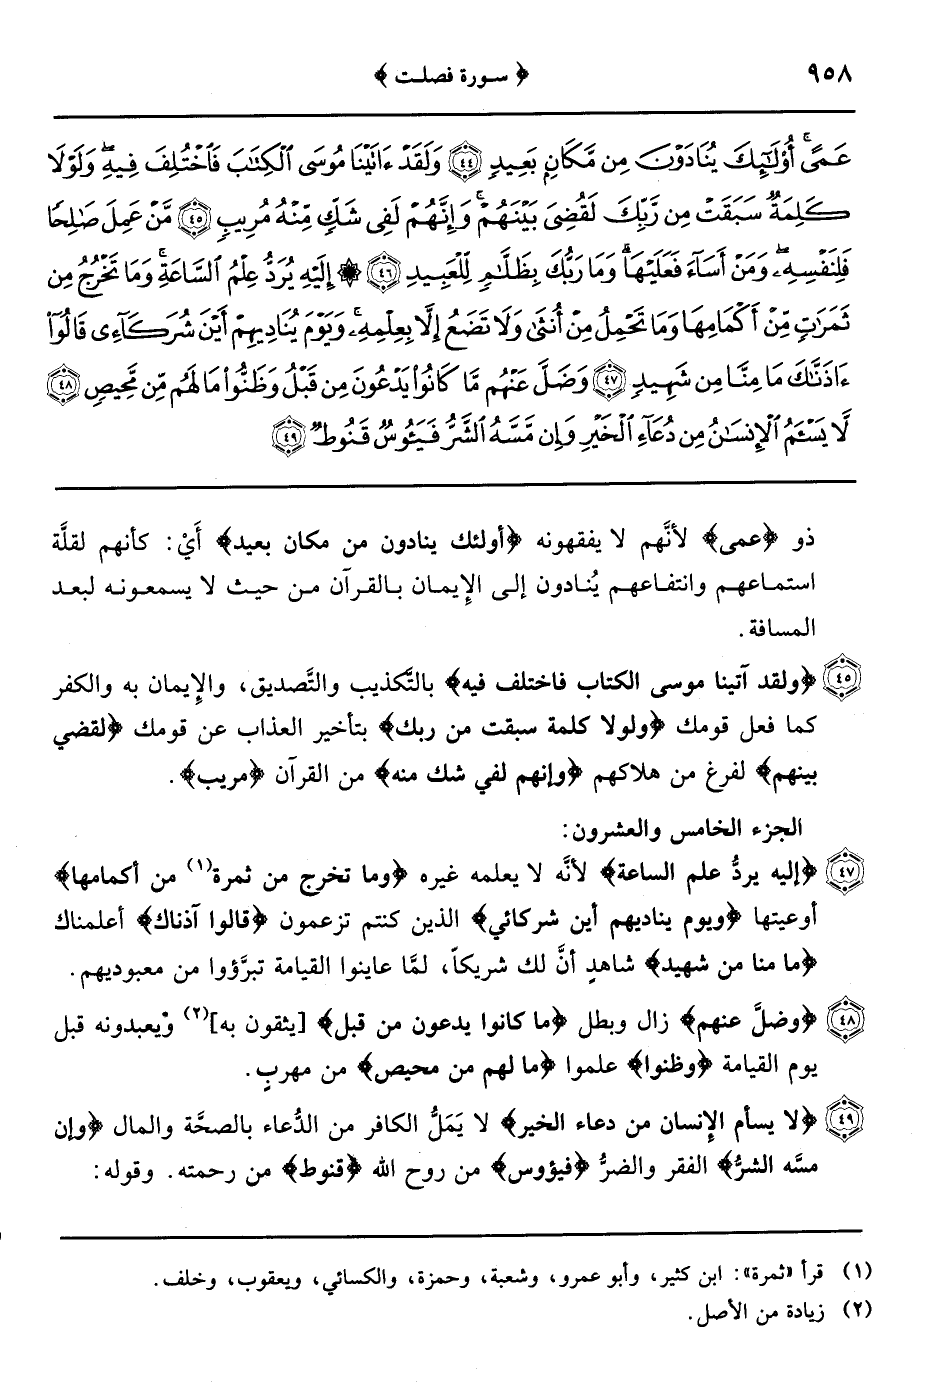 ٩٥٨ ﴿ سورة فصلت ﴾
عَمًى ۚ أُو۟لَـٰٓئِكَ يُنَادَوْنَ مِن مَّكَانٍۭ بَعِيدٍ ﴿٤٤﴾ وَلَقَدْ ءَاتَيْنَا مُوسَى ٱلْكِتَـٰبَ فَٱخْتُلِفَ فِيهِ ۗ وَلَوْلَا
كَلِمَةٌ سَبَقَتْ مِن رَّبِّكَ لَقُضِىَ بَيْنَهُمْ ۚ وَإِنَّهُمْ لَفِى شَكٍّ مِّنْهُ مُرِيبٍ ﴿٤٥﴾ مَّنْ عَمِلَ صَـٰلِحًا
فَلِنَفْسِهِۦ ۖ وَمَنْ أَسَآءَ فَعَلَيْهَا ۗ وَمَا رَبُّكَ بِظَلَّـٰمٍ لِّلْعَبِيدِ ﴿٤٦﴾ ۞ إِلَيْهِ يُرَدُّ عِلْمُ ٱلسَّاعَةِ ۚ وَمَا تَخْرُجُ مِن
ثَمَرَٰتٍ مِّنْ أَكْمَامِهَا وَمَا تَحْمِلُ مِنْ أُنثَىٰ وَلَا تَضَعُ إِلَّا بِعِلْمِهِۦ ۚ وَيَوْمَ يُنَادِيهِمْ أَيْنَ شُرَكَآءِى قَالُوٓا۟
ءَاذَنَّـٰكَ مَا مِنَّا مِن شَهِيدٍ ﴿٤٧﴾ وَضَلَّ عَنْهُم مَّا كَانُوا۟ يَدْعُونَ مِن قَبْلُ ۖ وَظَنُّوا۟ مَا لَهُم مِّن مَّحِيصٍ ﴿٤٨﴾
لَّا يَسْـَٔمُ ٱلْإِنسَـٰنُ مِن دُعَآءِ ٱلْخَيْرِ وَإِن مَّسَّهُ ٱلشَّرُّ فَيَـُٔوسٌ قَنُوطٌ ﴿٤٩﴾
ذو ﴿عمى﴾ لأنَّهم لا يفقهونه ﴿أولئك ينادون من مكان بعيد﴾ أَيْ: كأنهم لقلَّة
استماعهم وانتفاعهم يُنادون إلى الإيمان بالقرآن من حيث لا يسمعونه لبعد
المسافة.
﴿٤٥﴾ ﴿ولقد آتينا موسى الكتاب فاختلف فيه﴾ بالتَّكذيب والتَّصديق، والإيمان به والكفر
كما فعل قومك ﴿ولولا كلمة سبقت من ربك﴾ بتأخير العذاب عن قومك ﴿لقضي
بينهم﴾ لفرغ من هلاكهم ﴿وإنهم لفي شك منه﴾ من القرآن ﴿مريب﴾.
الجزء الخامس والعشرون:
﴿٤٧﴾ ﴿إليه يردُّ علم الساعة﴾ لأنَّه لا يعلمه غيره ﴿وما تخرج من ثمرة(١) من أكمامها﴾
أوعيتها ﴿ويوم يناديهم أين شركائي﴾ الذين كنتم تزعمون ﴿قالوا آذناك﴾ أعلمناك
﴿ما منا من شهيد﴾ شاهدٍ أنَّ لك شريكاً، لمَّا عاينوا القيامة تبرَّؤوا من معبوديهم.
﴿٤٨﴾ ﴿وضلَّ عنهم﴾ زال وبطل ﴿ما كانوا يدعون من قبل﴾ [يثقون به](٢) ويعبدونه قبل
يوم القيامة ﴿وظنوا﴾ علموا ﴿ما لهم من محيص﴾ من مهربٍ.
﴿٤٩﴾ ﴿لا يسأم الإنسان من دعاء الخير﴾ لا يَمَلُّ الكافر من الدُّعاء بالصحَّة والمال ﴿وإن
مسَّه الشرُّ﴾ الفقر والضرُّ ﴿فيؤوس﴾ من روح الله ﴿قنوط﴾ من رحمته. وقوله:
(١) قرأ «ثمرة»: ابن كثير، وأبو عمرو، وشعبة، وحمزة، والكسائي، ويعقوب، وخلف.
(٢) زيادة من الأصل.